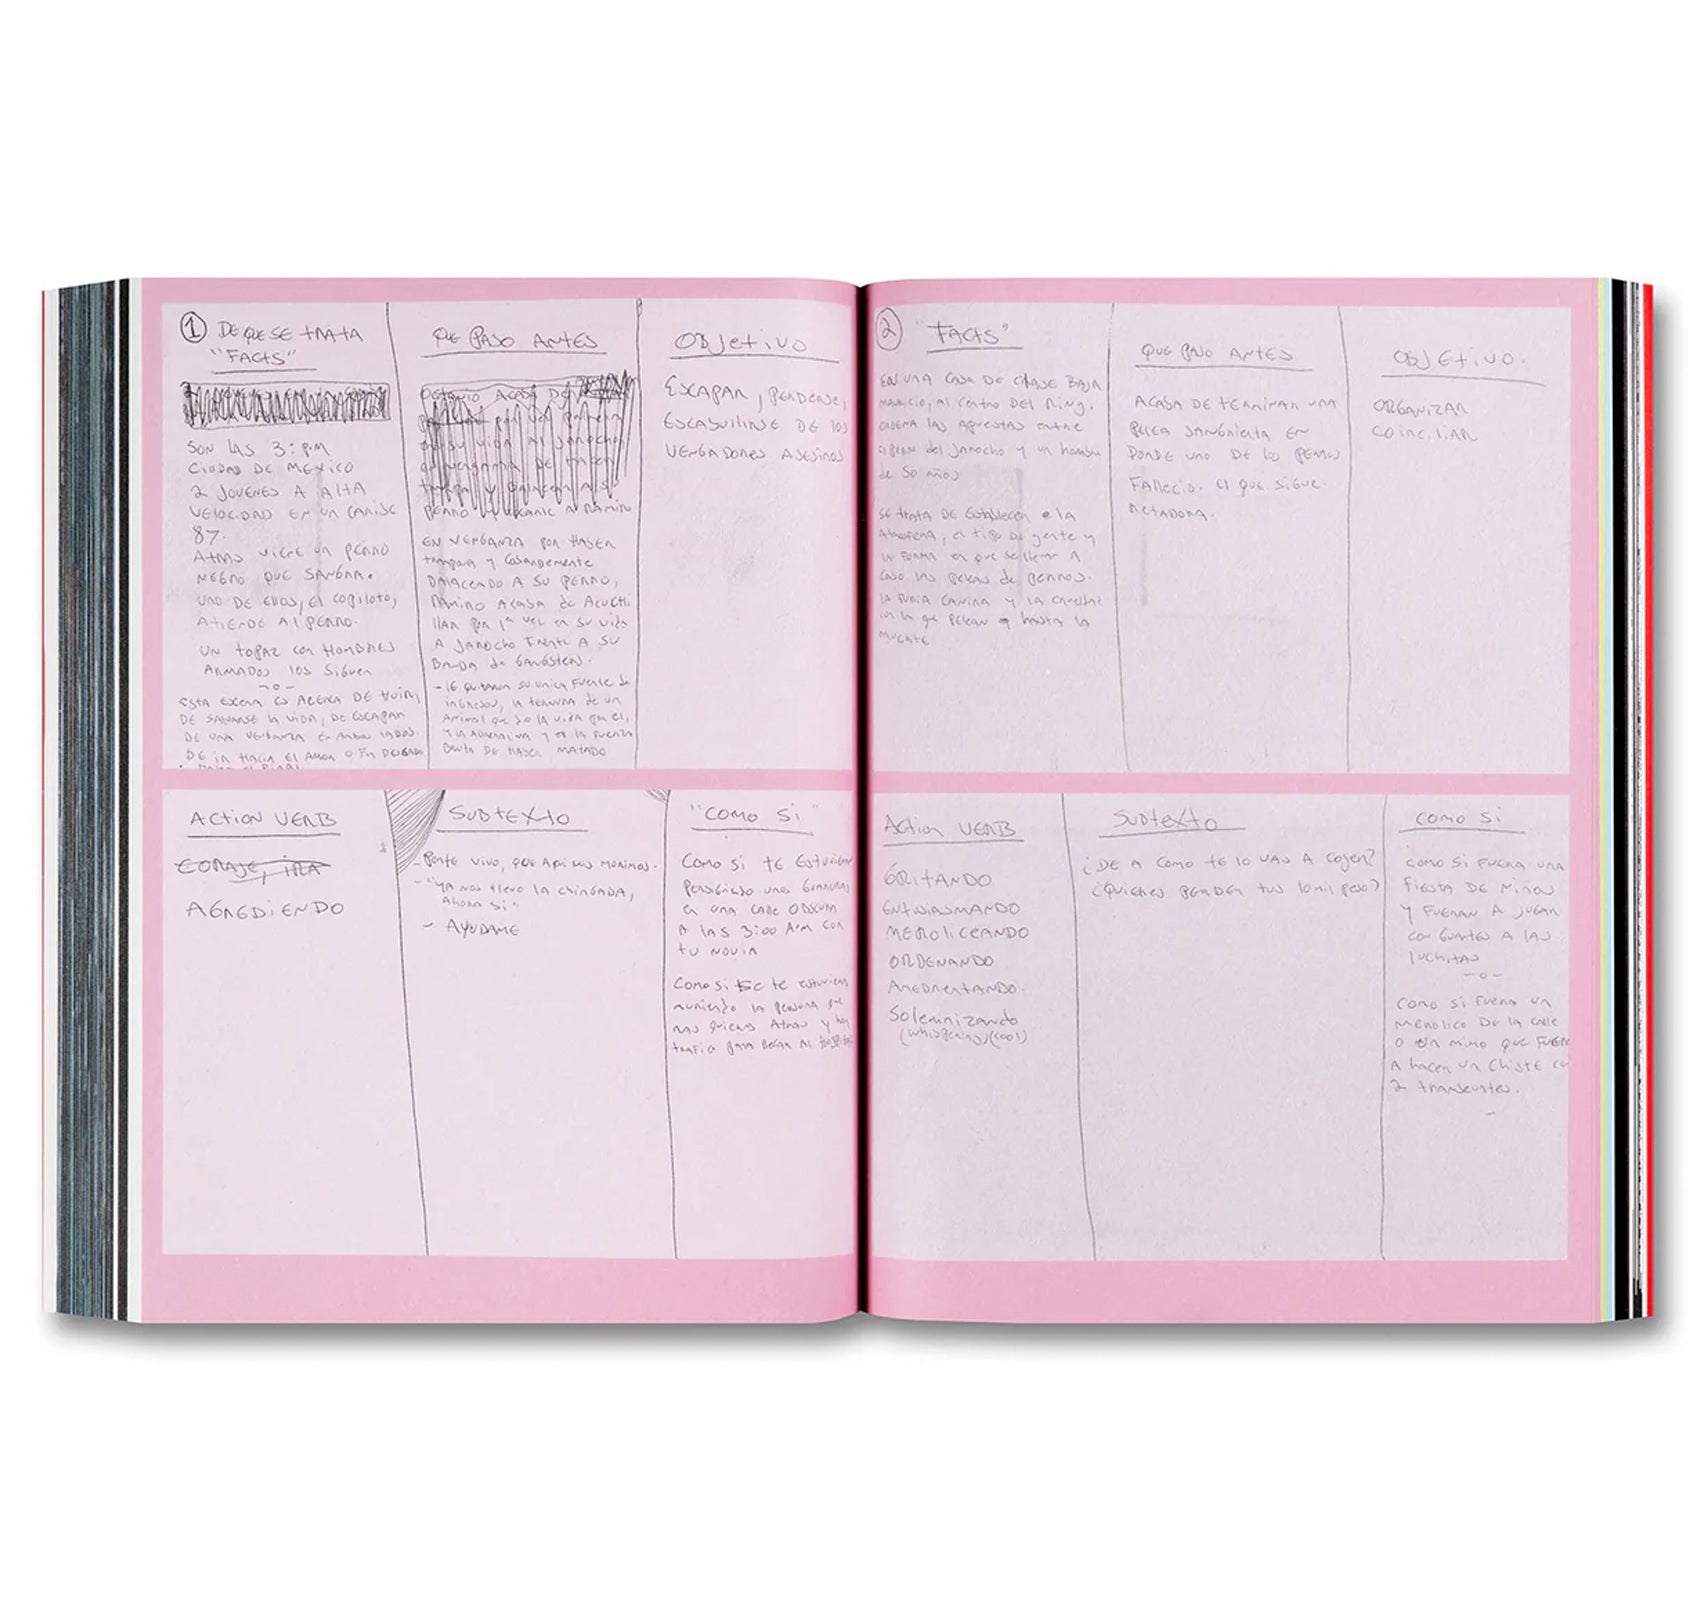 ① DE QUE SE TRATA
"FACTS"
SON LAS 3: P.M
CIUDAD DE MEXICO
2 JOVENES A ALTA
VELOCIDAD EN UN
87.
ATRAS VIENE UN PERRO
NEGRO QUE SANGRA.
UNO DE ELLOS, EL COPILOTO,
ATIENDE AL PERRO.
UN TOPAZ CON HOMBRES
ARMADOS LOS SIGUEN
-o-
ESTA ESCENA ES ACERCA DE HUIR,
DE SALVARSE LA VIDA, DE ESCAPAR
DE UNA VENGANZA EN AMBOS LADOS.
DE IR HACIA EL AMOR O FIN DESEADO
QUE PASO ANTES
OCTAVIO ACABA DE
EN VENGANZA POR HABER
TRAMPA Y COBARDEMENTE
BALACEADO A SU PERRO,
RAMIRO ACABA DE ACUCHI
LLAR POR 1ª VEZ EN SU VIDA
A JAROCHO FRENTE A SU
BANDA DE GANGSTERS.
- LE QUITARON SU UNICA FUENTE DE
INGRESOS, LA TERNURA DE UN
ANIMAL QUE DIO LA VIDA POR EL,
Y LA ADRENALINA Y LA FUERZA
BRUTA DE HABER MATADO
OBJETIVO
ESCAPAR, PERDERSE,
ESCABULLIRSE DE LOS
VENGADORES ASESINOS
ACTION VERB
CORAJE, IRA
AGREDIENDO
SUBTEXTO
- PONTE VIVO, QUE AQUI NOS MORIMOS.
- "YA NOS LLEVO LA CHINGADA,
AHORA SI"
- AYUDAME
"COMO SI"
COMO SI TE ESTUVIERAN
PERSIGUIENDO UNOS
EN UNA CALLE OBSCURA
A LAS 3:00 A.M CON
TU NOVIA
COMO SI SE TE ESTUVIERA
MURIENDO LA PERSONA QUE
MAS QUIERES ATRAS Y HAY
TRAFICO PARA LLEGAR AL HOSPITAL
② "FACTS"
EN UNA CASA DE CLASE BAJA
MAURICIO, AL CENTRO DEL RING,
ORDENA LAS APUESTAS ENTRE
el perro del Jarocho y un hombre
de 50 años
SE TRATA DE ESTABLECER LA
ATMOSFERA, EL TIPO DE GENTE Y
LA FORMA EN QUE SE LLEVAN A
CABO LAS PELEAS DE PERROS.
LA FURIA CANINA Y LA CRUELDAD
CON LA QUE PELEAN HASTA LA
MUERTE
QUE PASO ANTES
ACABA DE TERMINAR UNA
PELEA SANGRIENTA EN
DONDE UNO DE LOS PERROS
FALLECIO. EL QUE SIGUE.
OBJETIVO.
ORGANIZAR
COINCILIAR
Action VERB
GRITANDO
ENTUSIASMANDO
MEROLICEANDO
ORDENANDO
AMEDRENTANDO.
Solemnizando
(whispering)(cool)
SUBTEXTO
¿DE A COMO TE LO VAS A COGER?
¿QUIENES PIERDEN TUS 10 mil PESOS?
COMO SI
COMO SI FUERA UNA
FIESTA DE NIÑOS
Y FUERAN A JUGAR
CON GUANTES A LAS
LUCHITAS
-o-
COMO SI FUERA UN
MEROLICO DE LA CALLE
O UN MIMO QUE FUERA
A HACER UN CHISTE CON
2 TRANSEUNTES.